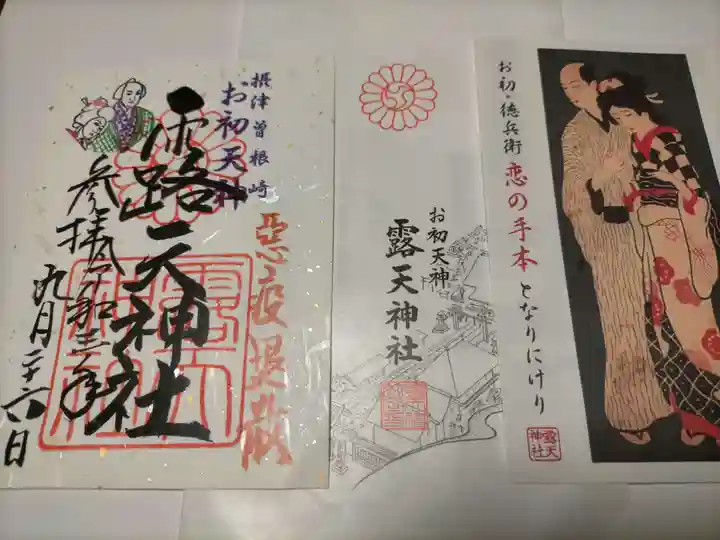 摂津曽根崎
お初天神
露天神社
参拝
令和三年
九月二十六日
悪疫退散
お初天神
露天神社
お初・徳兵衛
恋の手本
となりにけり
露天
神社